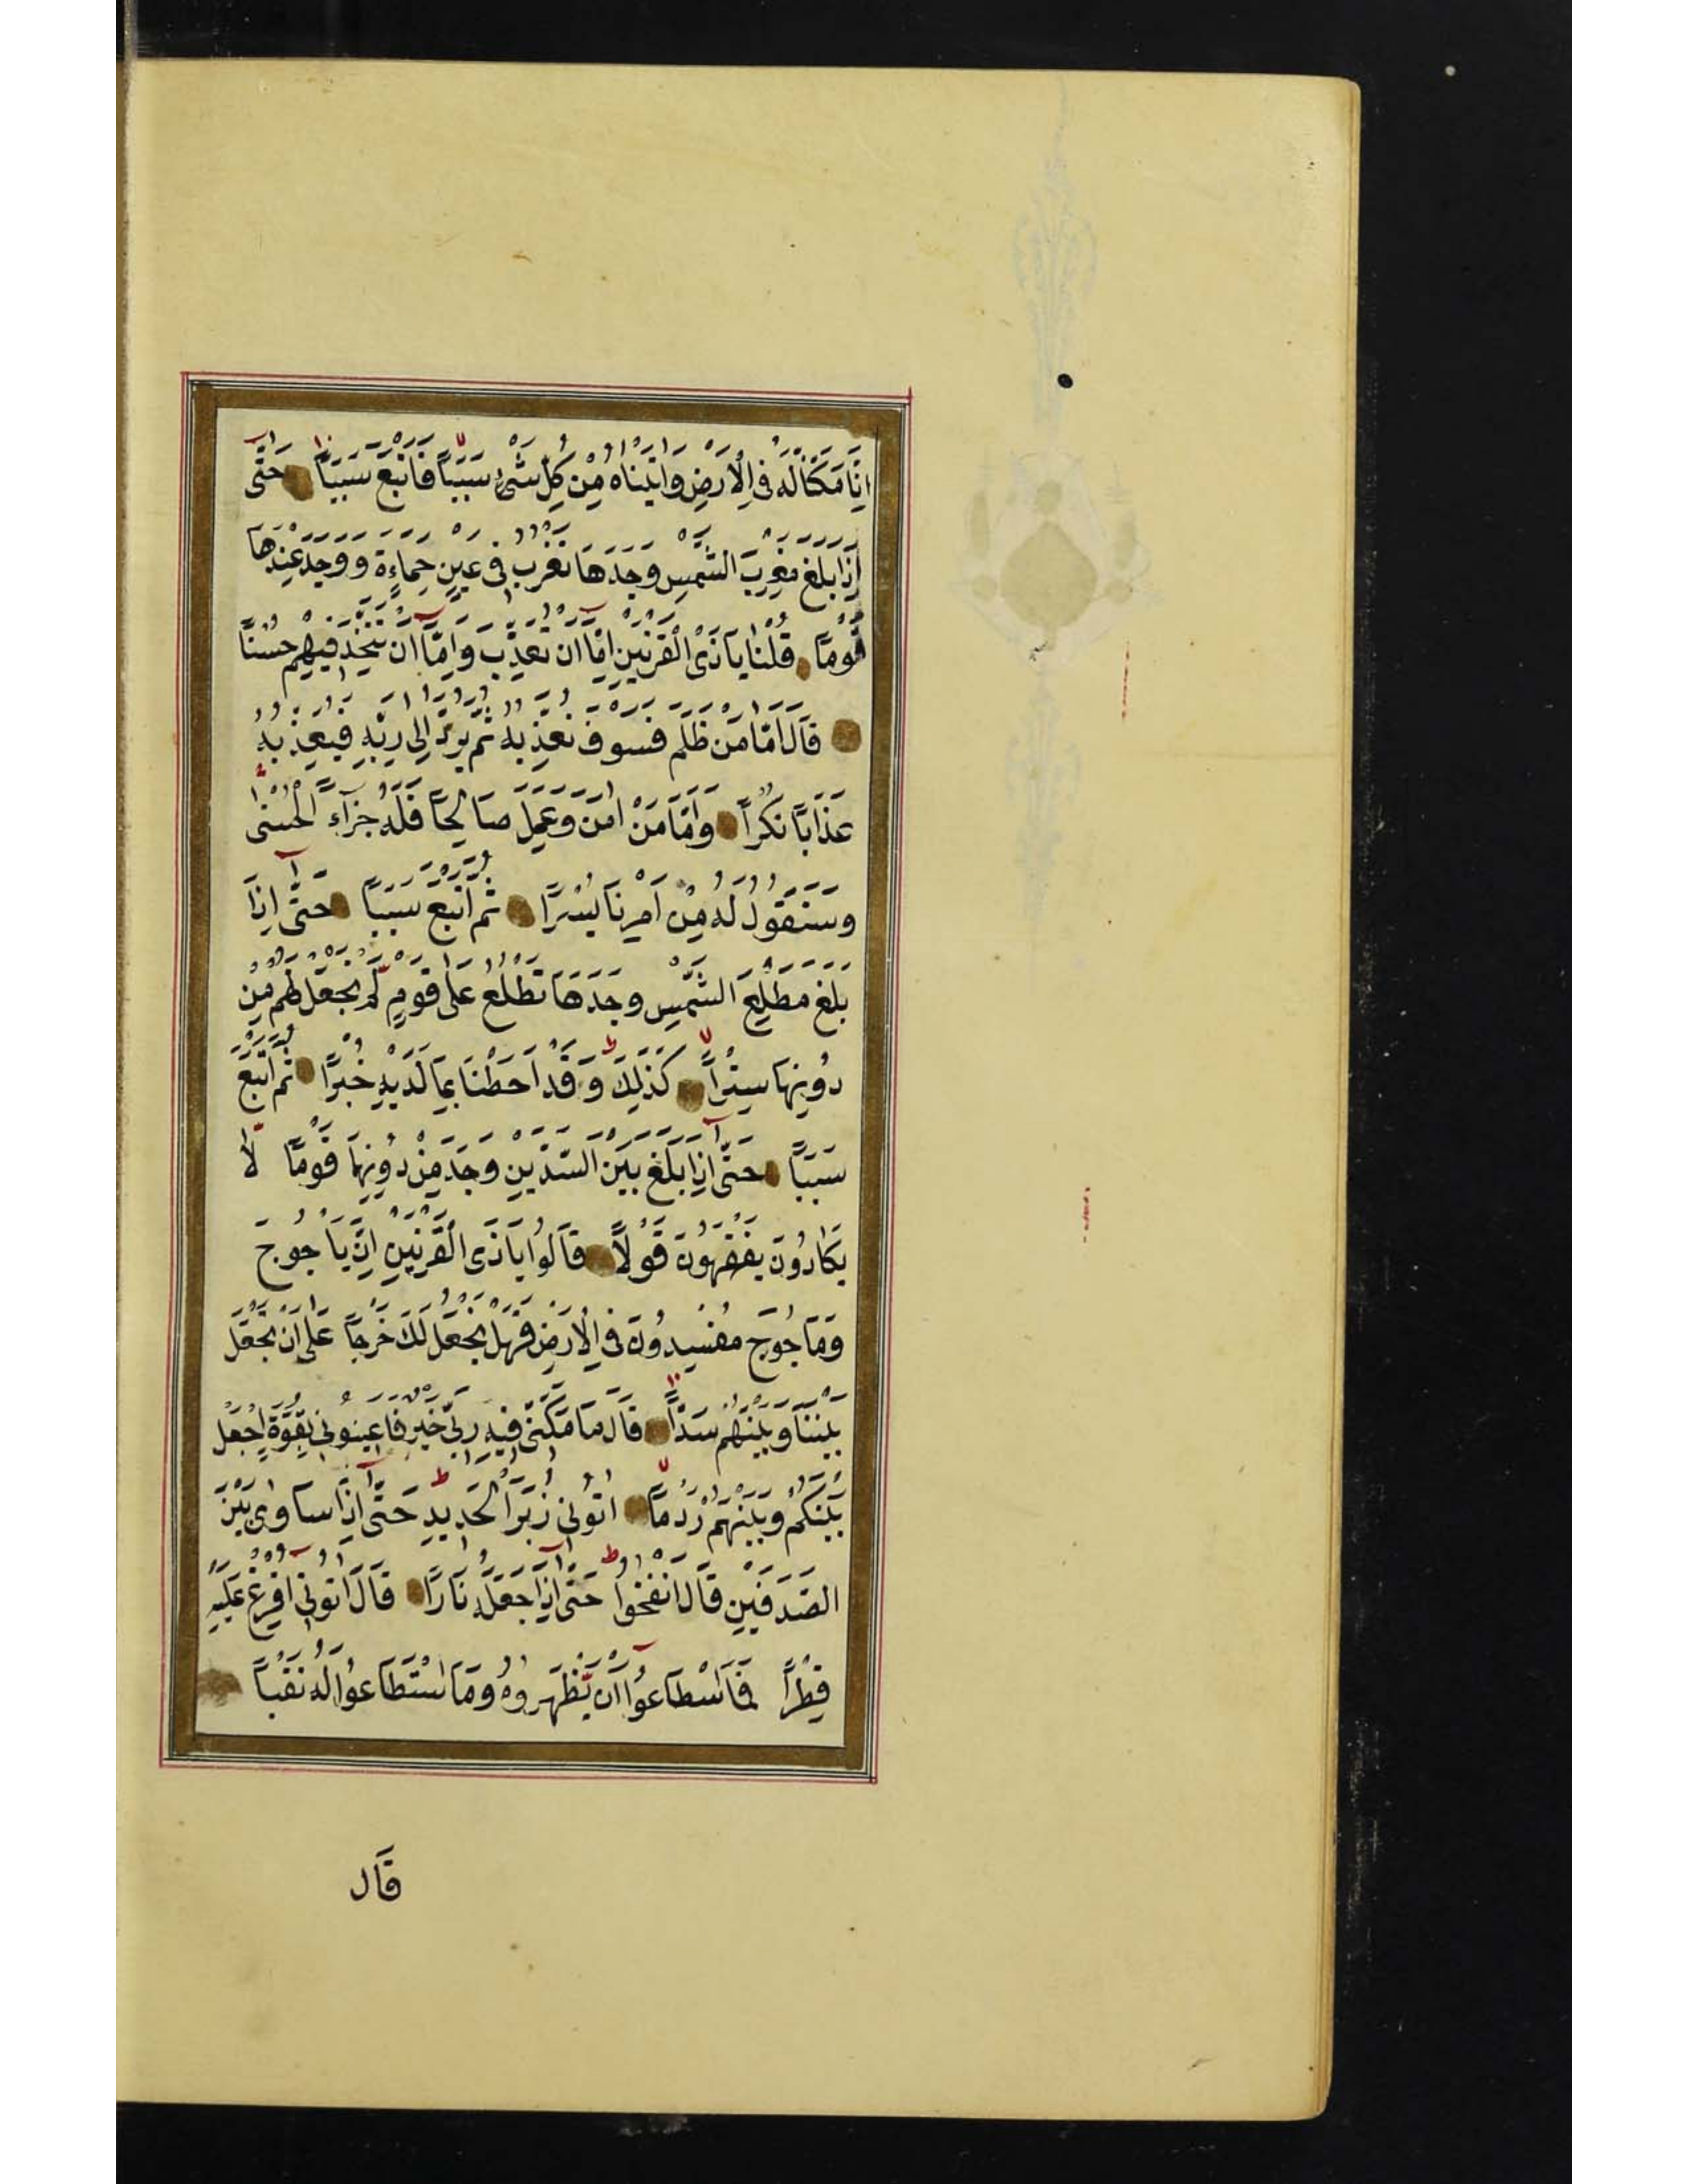 اِنَّا مَكَّنَّا لَهُ فِي الْاَرْضِ وَاٰتَيْنَاهُ مِنْ كُلِّ شَيْءٍ سَبَبًا فَاَتْبَعَ سَبَبًا حَتّٰى
اِذَا بَلَغَ مَغْرِبَ الشَّمْسِ وَجَدَهَا تَغْرُبُ فِي عَيْنٍ حَمِاءَةٍ وَوَجَدَ عِنْدَهَا
قَوْمًا قُلْنَا يَا ذَى الْقَرْنَيْنِ اِمَّا اَنْ تُعَذِّبَ وَاِمَّا اَنْ تَتَّخِذَ فِيهِمْ حُسْنًا
قَالَ اَمَّا مَنْ ظَلَمَ فَسَوْفَ نُعَذِّبُهُ ثُمَّ يُرَدُّ اِلٰى رَبِّهِ فَيُعَذِّبُهُ
عَذَابًا نُكْرًا وَاَمَّا مَنْ اٰمَنَ وَعَمِلَ صَالِحًا فَلَهُ جَزَآءً الْحُسْنٰى
وَسَنَقُولُ لَهُ مِنْ اَمْرِنَا يُسْرًا ثُمَّ اَتْبَعَ سَبَبًا حَتّٰى اِذَا
بَلَغَ مَطْلِعَ الشَّمْسِ وَجَدَهَا تَطْلُعُ عَلٰى قَوْمٍ لَمْ نَجْعَلْ لَهُمْ مِنْ
دُونِهَا سِتْرًا كَذٰلِكَ وَقَدْ اَحَطْنَا بِمَا لَدَيْهِ خُبْرًا ثُمَّ اَتْبَعَ
سَبَبًا حَتّٰى اِذَا بَلَغَ بَيْنَ السَّدَّيْنِ وَجَدَ مِنْ دُونِهِمَا قَوْمًا لَا
يَكَادُونَ يَفْقَهُونَ قَوْلًا قَالُوا يَا ذَى الْقَرْنَيْنِ اِنَّ يَاجُوجَ
وَمَاجُوجَ مُفْسِدُونَ فِي الْاَرْضِ فَهَلْ نَجْعَلُ لَكَ خَرْجًا عَلٰى اَنْ تَجْعَلَ
بَيْنَنَا وَبَيْنَهُمْ سَدًّا قَالَ مَا مَكَّنِّي فِيهِ رَبِّي خَيْرٌ فَاَعِينُونِي بِقُوَّةٍ اَجْعَلْ
بَيْنَكُمْ وَبَيْنَهُمْ رَدْمًا اٰتُونِي زُبَرَ الْحَدِيدِ حَتّٰى اِذَا سَاوٰى بَيْنَ
الصَّدَفَيْنِ قَالَ انْفُخُوا حَتّٰى اِذَا جَعَلَهُ نَارًا قَالَ اٰتُونِي اُفْرِغْ عَلَيْهِ
قِطْرًا فَمَا اسْطَاعُوا اَنْ يَظْهَرُوهُ وَمَا اسْتَطَاعُوا لَهُ نَقْبًا
قَالَ